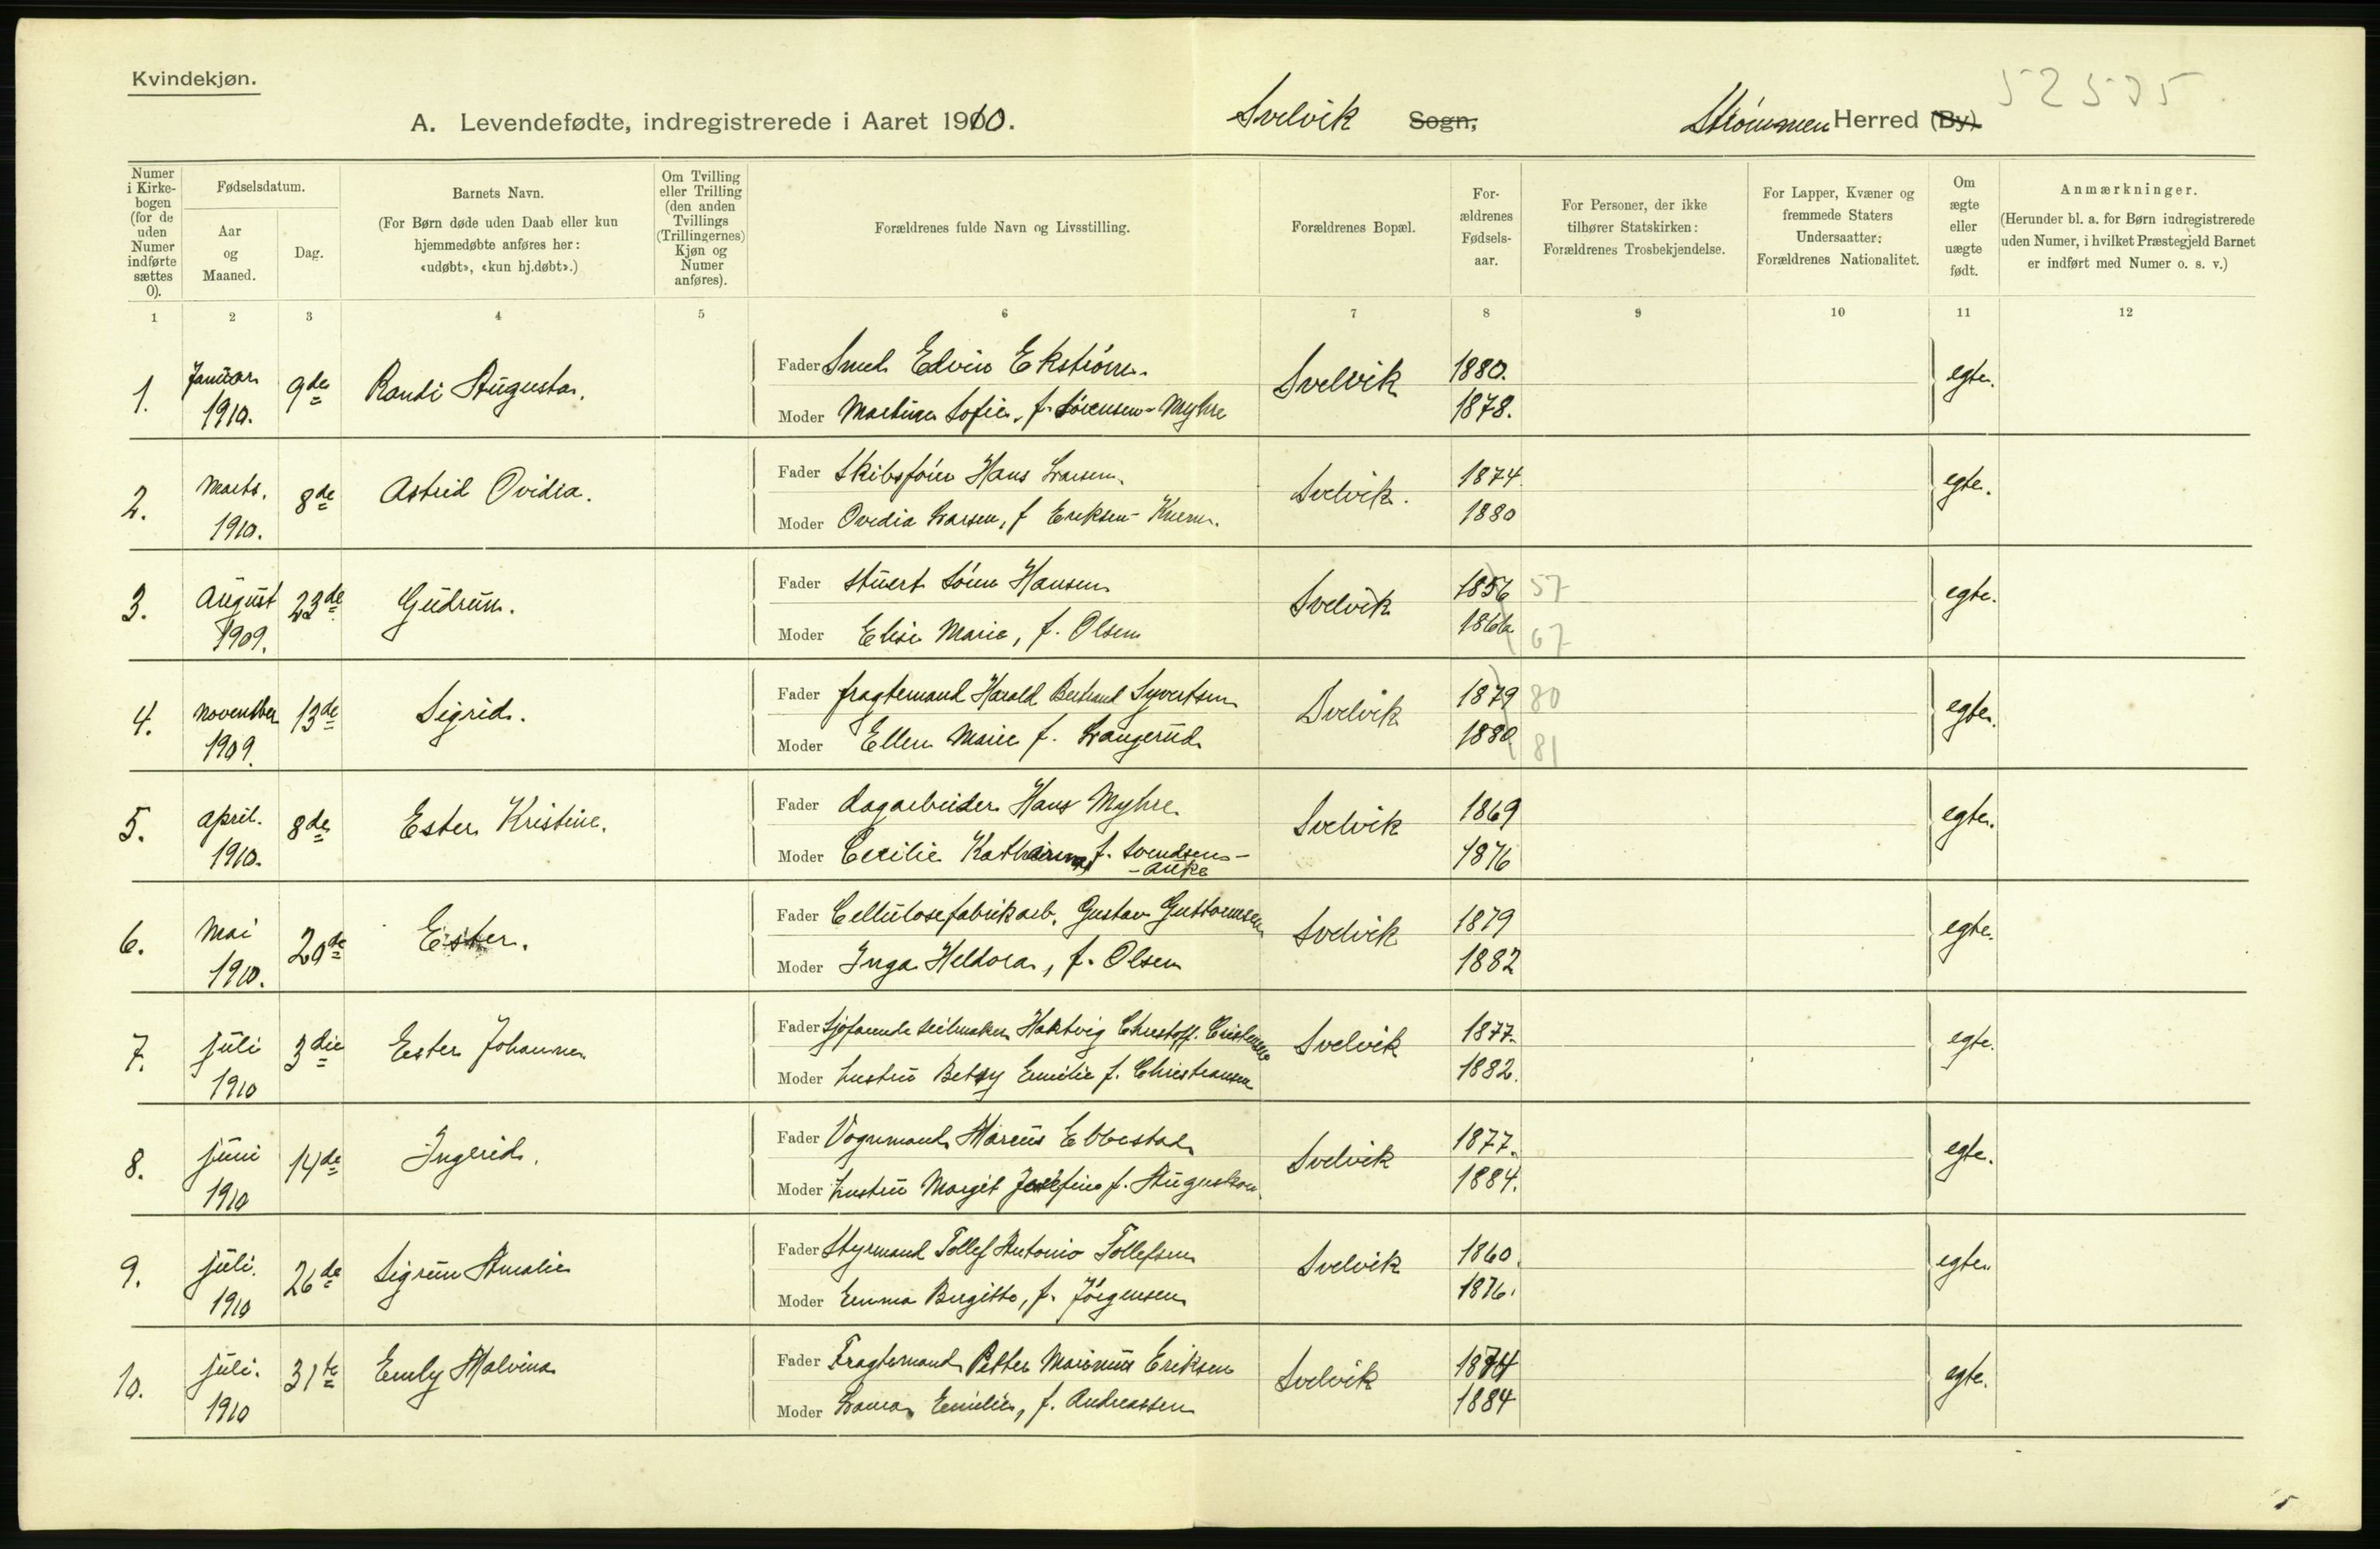 Kvindekjøn.
52535
A. Levendefødte, indregistrerede i Aaret 1910. Svelvik Sogn, Strømmen Herred (By)
Numer i Kirkebogen (for de uden Numer indførte sættes 0).
Fødselsdatum.
Aar og Maaned.
Dag.
Barnets Navn.
(For Børn døde uden Daab eller kun hjemmedøbte anføres her: «udøbt», «kun hj.døbt».)
Om Tvilling eller Trilling (den anden Tvillings (Trillingernes) Kjøn og Numer anføres).
Forældrenes fulde Navn og Livsstilling.
Forældrenes Bopæl.
Forældrenes Fødselsaar.
For Personer, der ikke tilhører Statskirken: Forældrenes Trosbekjendelse.
For Lapper, Kvæner og fremmede Staters Undersaatter: Forældrenes Nationalitet.
Om ægte eller uægte født.
Anmærkninger.
(Herunder bl. a. for Børn indregistrerede uden Numer, i hvilket Præstegjeld Barnet er indført med Numer o. s. v.)
1 2 3 4 5 6 7 8 9 10 11 12
1. Januar 1910. 9de Randi Augusta. Fader Smed Edvin Ekstrøm. Svelvik 1880. egte.
Moder Martine Sofie, f. Sørensen-Myhre 1878.
2. Marts. 1910. 8de Astrid Ovidia. Fader Skibsfører Hans Larsen. Svelvik. 1874 egte.
Moder Ovidia Larsen, f Eriksen- 1880
3. August 1909. 23de Gudrun. Fader Stuert Sören Hansen Svelvik 1856 57 egte.
Moder Elise Marie, f. Olsen 1866 67
4. November 1909. 13de Sigrid. Fader fragtemand Harald Bertrand Syvertsen Svelvik 1879 80 egte.
Moder Ellen Marie f. Langerud 1880 81
5. April. 1910. 8de Ester Kristine. Fader dagarbeider Hans Myhre Svelvik 1869 egte.
Moder Cecilie Katharina f. Svendsen- 1876
-Auke
6. Mai 1910. 20de Ester. Fader Cellulosefabrikarb. Gustav Guttormsen Svelvik 1879 egte.
Moder Inga Heldora, f. Olsen 1882
7. Juli 1910 3die Ester Johanne Fader Sjøfarende seilmaker Hartvig Christoff. Svelvik 1877. egte.
Moder hustru Betsy Emilie f. Christiansen 1882.
8. Juni 1910 14de Ingerid. Fader Vognmand Marius Ebbestad Svelvik 1877. egte.
Moder hustru Margit Josefine f. Augustson 1884.
9. Juli. 1910 26de Sigrun Amalie Fader Styrmand Tollef Antonio Tollefsen Svelvik 1860. egte.
Moder Emma Birgitte, f. Jörgensen 1876.
10. Juli. 1910 31te Emly Malvina Fader Fragtemand Petter Marinius Eriksen Svelvik 1874 egte.
Moder Laura Emilie, f. Andreassen 1884
5